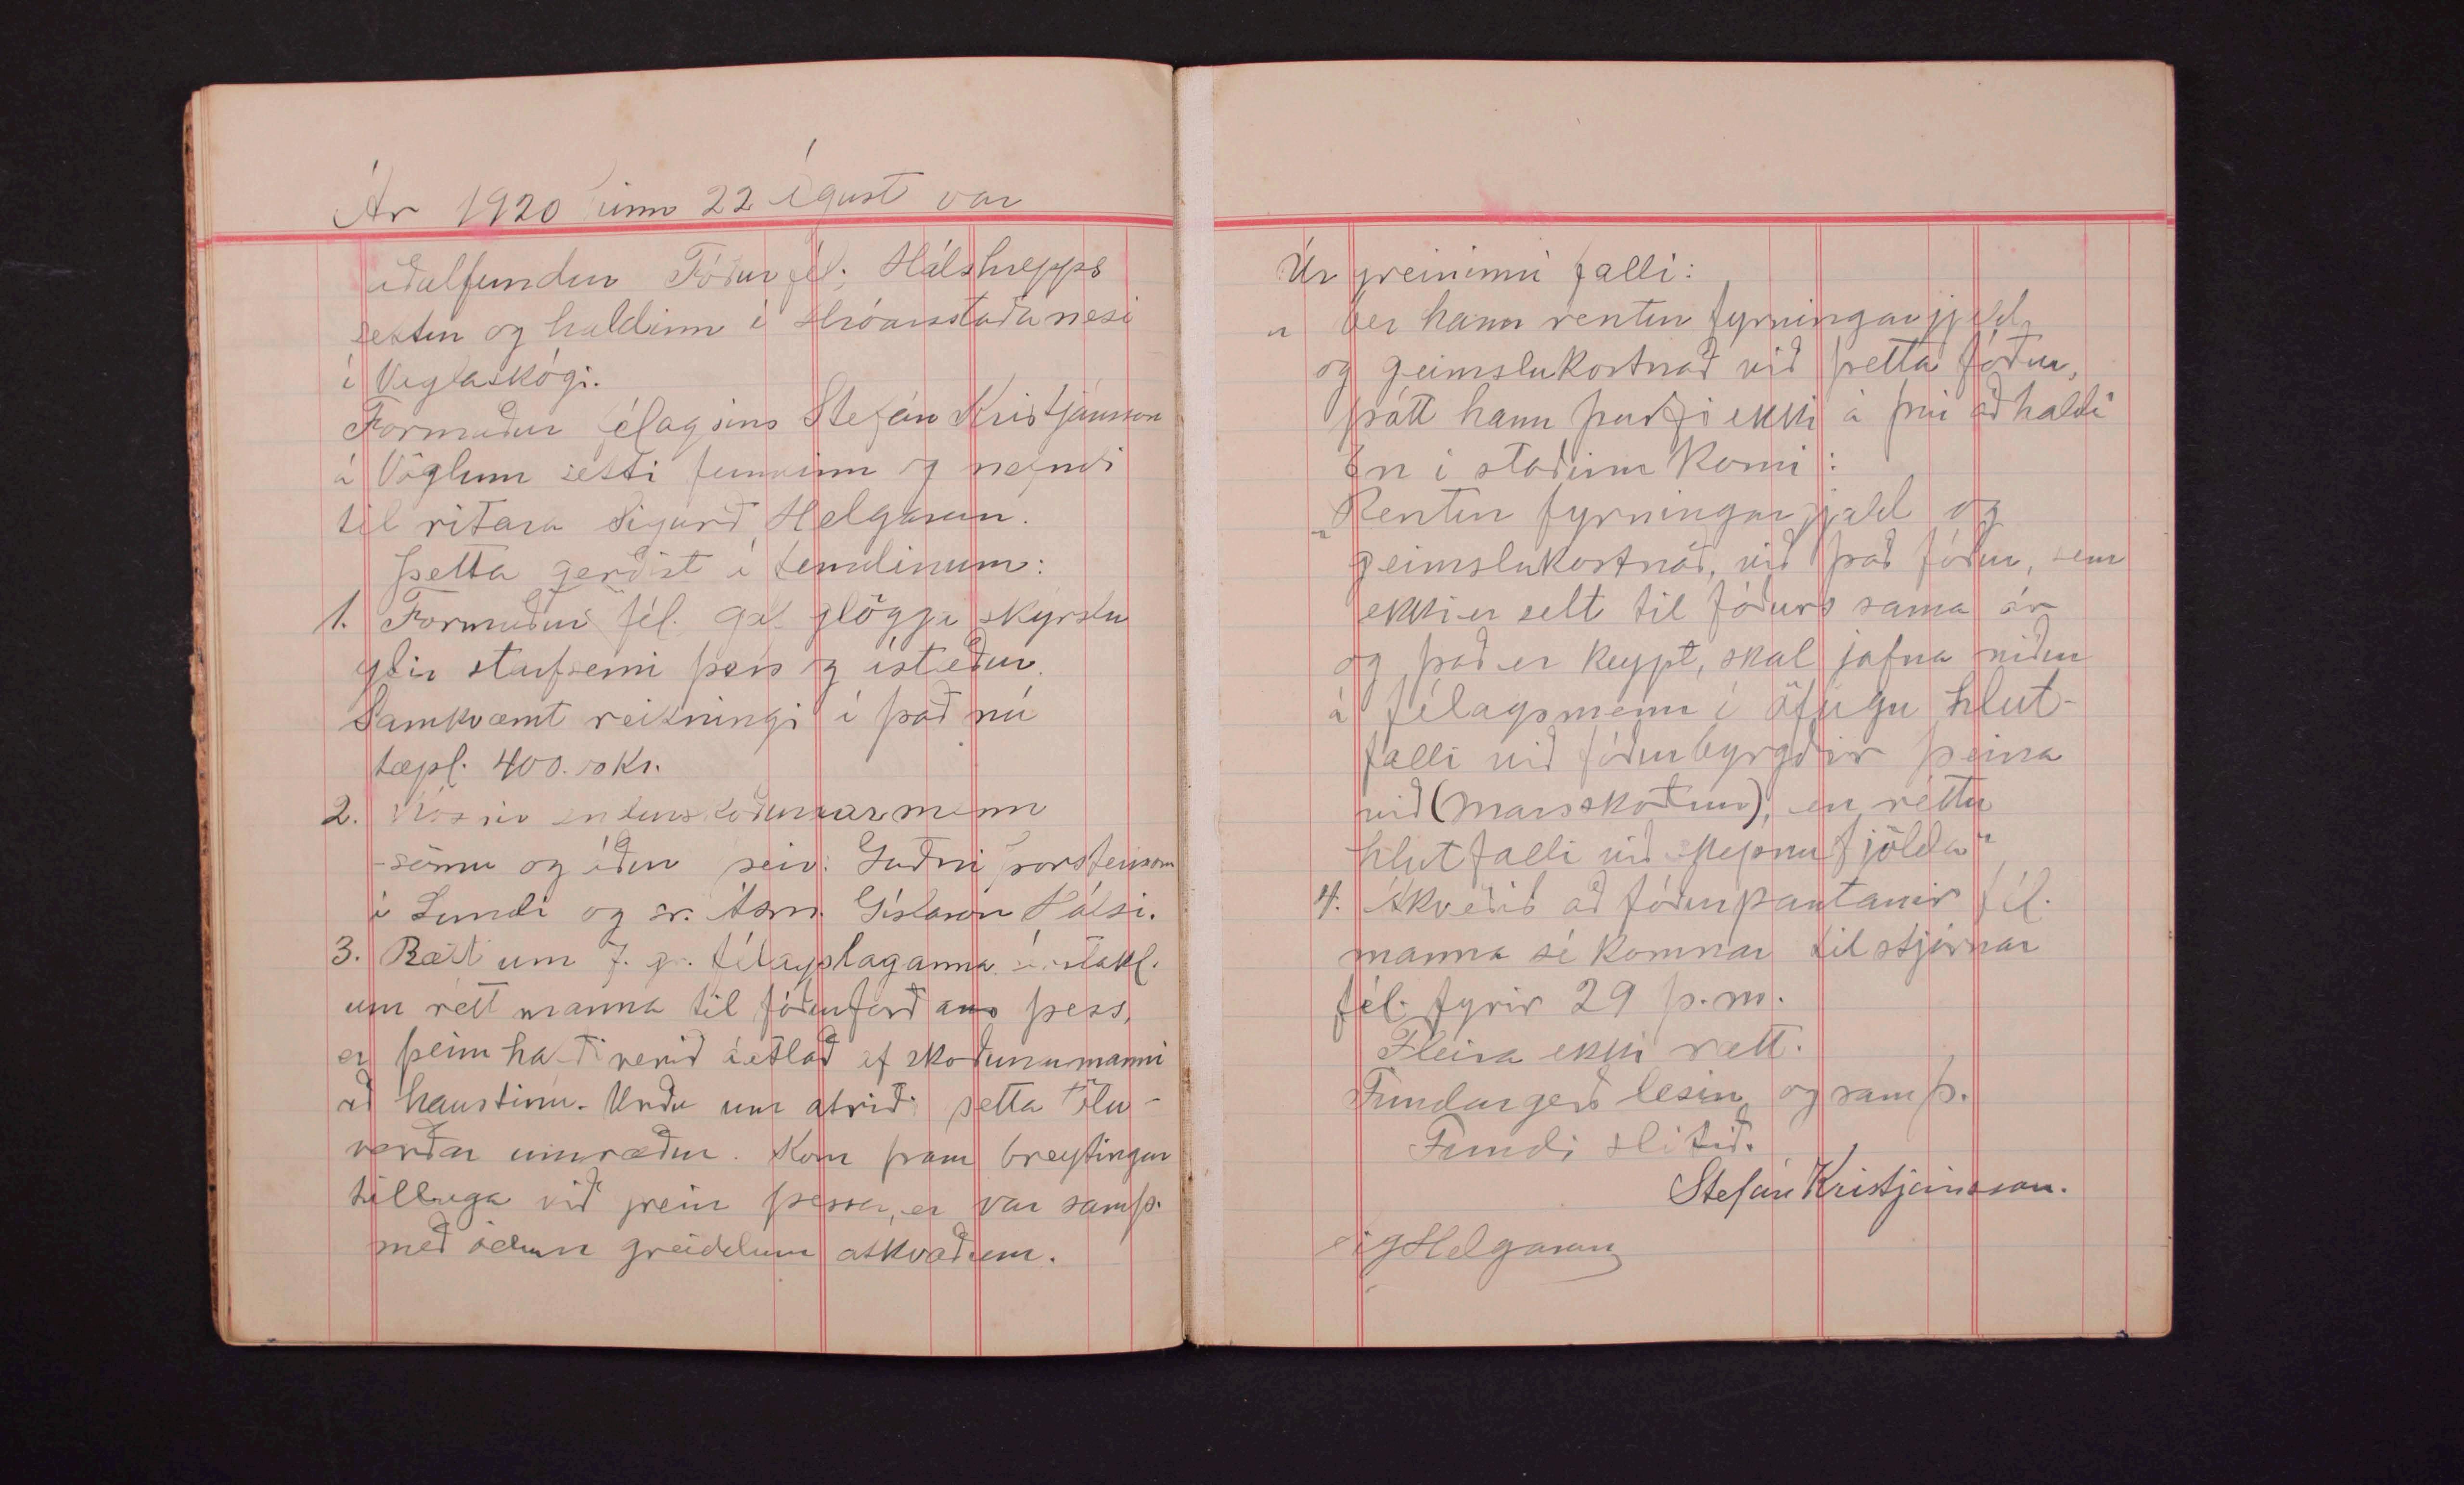 Ár 1920 inn 22 ágúst var
aðalfundur Fóðurfél: Hálshrepps
settur og haldinn í Hróarsstaðanesi
í Vaglaskógi.
Formaður félagsins Stefán Kristjánsson
á Vöglum setti fundinn og nefndi
til ritara Sigurð Helgason.
Þetta gerðist á fundinum:
1. Formaður fél. gaf glögga skýrslu
yfir starfsemi þess og ástæður.
Samkvæmt reikningi á það nú
tæpl. 400.00 Kr.
2. Kosnir endurskoðunarmenn
sömu og áður þeir: Guðni Þorsteinsson
í Lundi og sr. Ásm. Gíslason Hálsi.
3. Rætt um 7. gr. félagslaganna sérstakl.
um rétt manna til fóðurforðans þess,
er þeim hafði verið áætlað af skoðunarmanni
að haustinu. Urðu um atriði þetta tölu-
verðar umræður. Kom fram breytingar
tillaga við grein þessa, er var samþ.
með öllum greiddum atkvæðum.
Úr greininni falli:
„ Ber hann rentur fyrningargjald
og geimslukostnað við þetta fóður,
þótt hann þurfi ekki á því að halda"
En í staðinn komi:
„Rentur fyrningargjald og
geimslukostnað, við það fóður, sem
ekki er selt til fóðurs sama ár
og það er keypt, skal jafna niður
á félagsmenn í öfugu hlut-
falli við fóðurbyrgðir þeirra
við (marsskoðun), en réttu
hlutfalli við skepnufjölda"
4. Ákveðið að fóðurpantanir fél.
manna sé komnar til stjórnar
fél. fyrir 29 þ.m.
Fleira ekki rætt.
Fundargerð lesin og samþ.
Fundi slitið.
Stefán Kristjánsson.
Sig Helgason